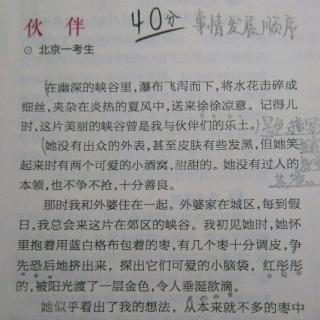 伙伴 40分 事情发展顺序
⊙ 北京一考生
在幽深的峡谷里,瀑布飞泻而下,将水花击碎成
细丝,夹杂在炎热的夏风中,送来徐徐凉意。记得儿
时,这片美丽的峡谷曾是我与伙伴们的乐土。
她没有出众的外表,甚至皮肤有些发黑,但她笑
起来时有两个可爱的小酒窝,甜甜的。她没有过人的
本领,也不争不抢,十分善良。
那时我和外婆住在一起。外婆家在城区,每到假
日,我总会来这片在郊区的峡谷。我初见她时,她怀
里抱着用蓝白格布包着的枣,有几个枣十分调皮,争
先恐后地挤出来,探出它们可爱的小脑袋,红彤彤
的,被阳光渡了一层金色,令人垂涎欲滴。
她似乎看出了我的想法,从本来就不多的枣中